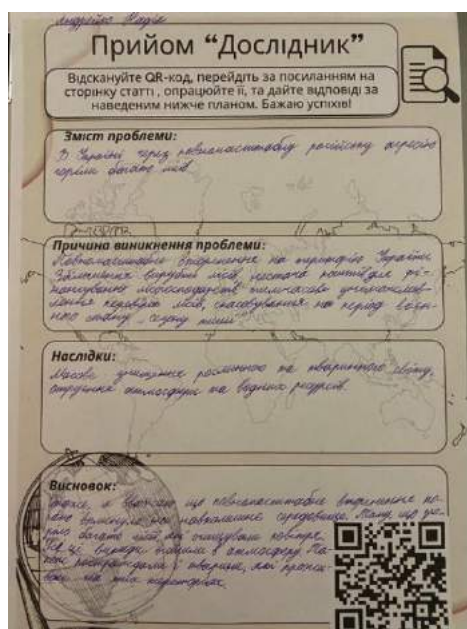 Андрейко Надія
Прийом “Дослідник”
Відскануйте QR-код, перейдіть за посиланням на
сторінку статті , опрацюйте її, та дайте відповіді за
наведеним нижче планом. Бажаю успіхів!
Зміст проблеми:
В Україні через повномасштабну російську агресію
горіли багато лісів
Причина виникнення проблеми:
Повномасштабне вторгнення на територію України
Збільшення вирубки лісів, нестача коштів для фі-
нансування лісогосподарств тимчасове унеможлив-
лення перевірок лісів, скасування на період воєн-
ного стану „сезону тиші“
Наслідки:
Масове знищення рослинного та тваринного світу,
отруєння атмосфери та водних ресурсів.
Висновок:
Отже, я вважаю що повномасштабне вторгнення по-
гано вплинуло на навколишнє середовище. Тому що
багато лісів, які очищували повітря.
Усі ці викиди в атмосферу. Та-
кож постраждали і тварини, які прожи-
вали на тих територіях.